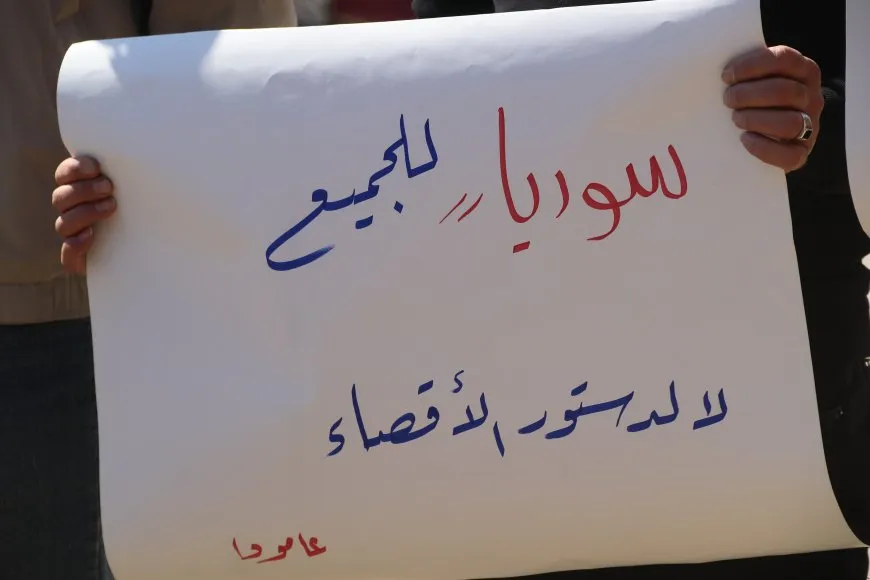 سوريا // للجميع
لا لدستور الأقصاء
عامودا